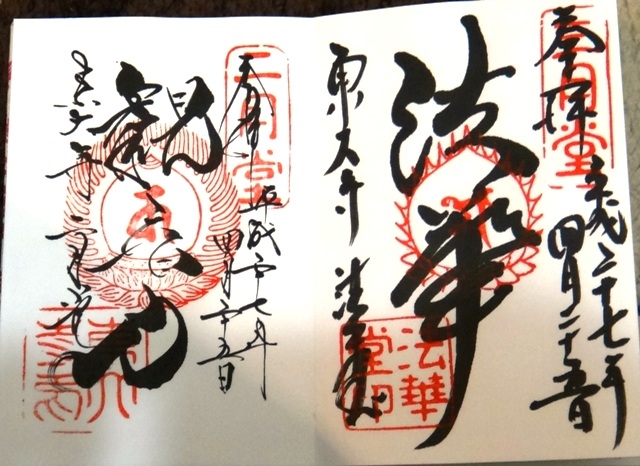 奉拝
三月堂
平成二十七年
四月二十五日
法華
東大寺 法華堂
法華
堂印
奉拝
二月堂
平成二十七年
四月二十五日
観音力
東大寺 二月堂